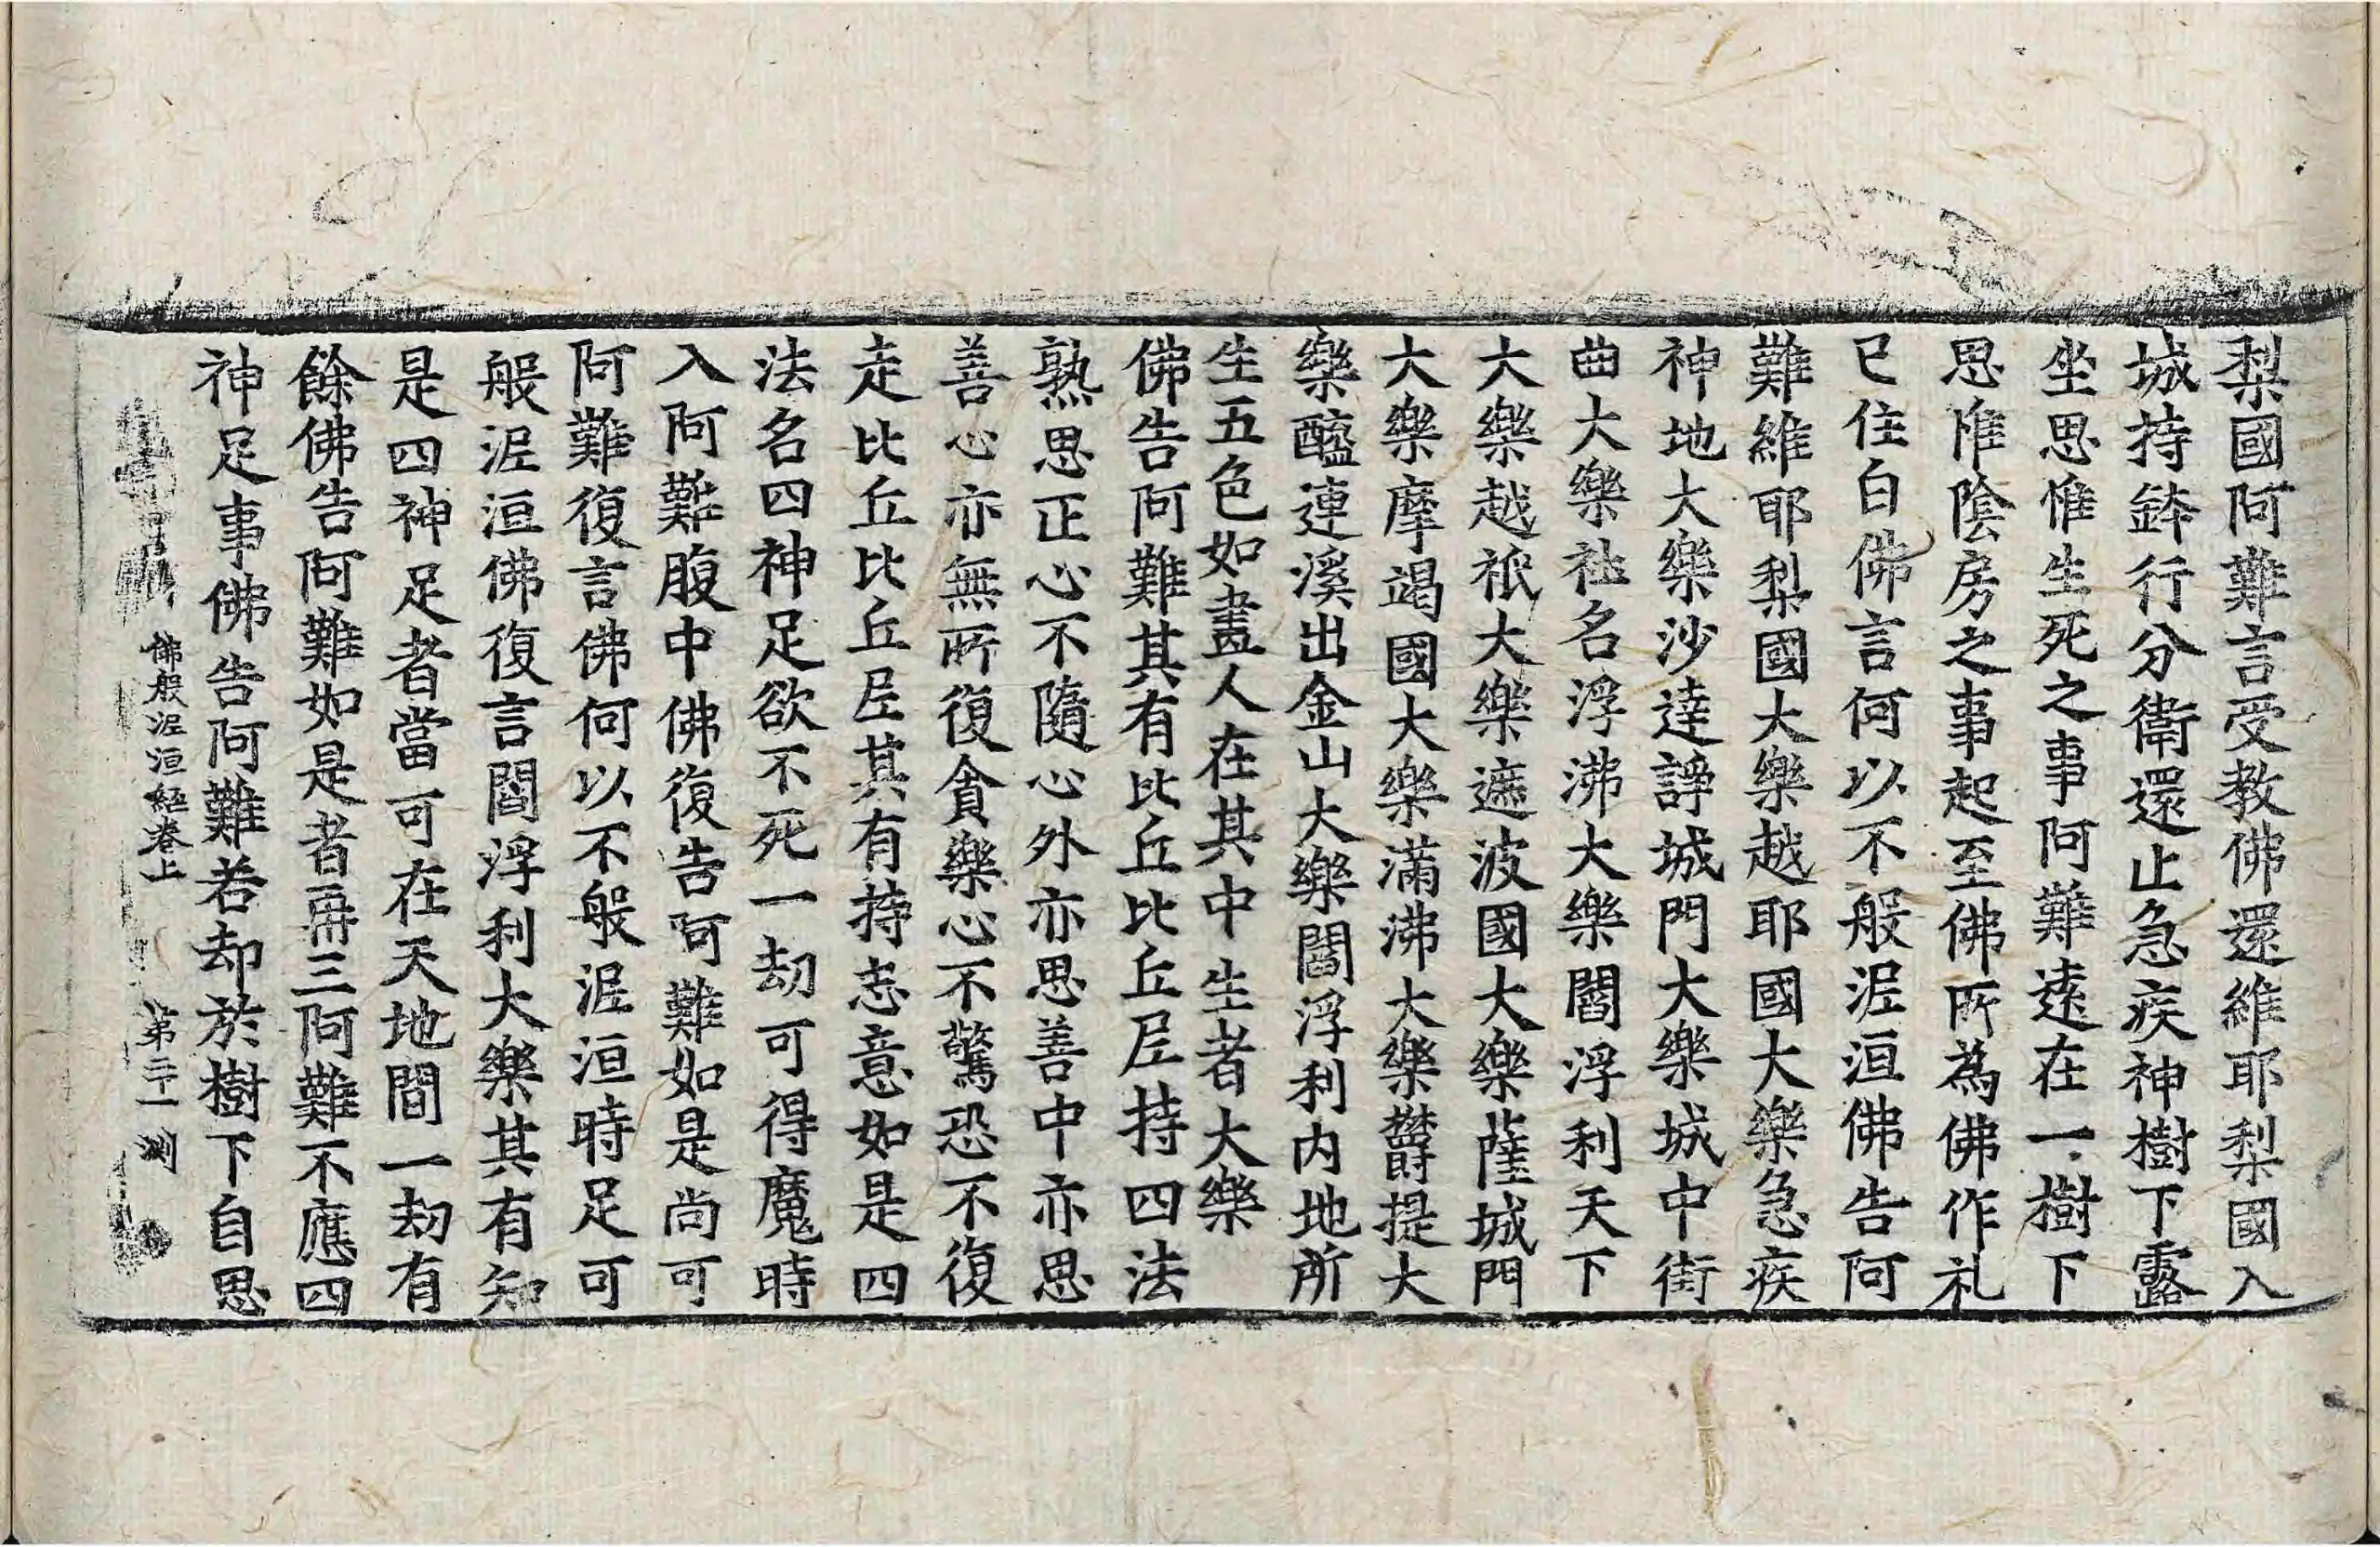 梨國阿難言受教佛還維耶梨國入
城持鉢行分衛還止急疾神樹下露
坐思惟生死之事阿難遠在一樹下
思惟陰房之事起至佛所為佛作礼
已住白佛言何以不般泥洹佛告阿
難維耶梨國大樂越耶國大樂急疾
神地大樂沙達諍城門大樂城中街
曲大樂社名浮沸大樂閻浮利天下
大樂越祇大樂遮波國大樂薩城門
大樂摩竭國大樂滿沸大樂欝提大
樂醯連溪出金山大樂閻浮利內地所
生五色如畫人在其中生者大樂
佛告阿難其有比丘比丘尼持四法
熟思正心不隨心外亦思善中亦思
善心亦無所復貪樂心不驚恐不復
走比丘比丘尼其有持志意如是四
法名四神足欲不死一劫可得魔時
入阿難腹中佛復告阿難如是尚可
阿難復言佛何以不般泥洹時足可
般泥洹佛復言閻浮利大樂其有知
是四神足者當可在天地間一劫有
餘佛告阿難如是者再三阿難不應四
神足事佛告阿難若却於樹下自思
佛般泥洹經卷上 第二十一 測